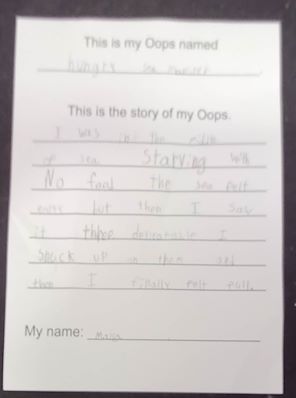 This is my Oops named
hungry sea monster
This is the story of my Oops.
I was in the
of sea Starving with
No food the sea felt
but then I saw
it three I
Snuck up on them and
then I finally felt full.
My name: